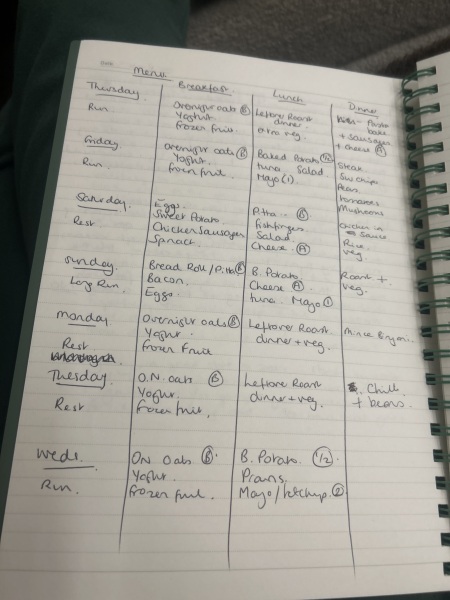 Menu
Breakfast. Lunch Dinner
Thursday
Run.
Overnight oats (B)
Yoghurt.
frozen fruit.
Leftove Roast
dinner.
extra veg.
Potato
bake
+ sausages
+ cheese (A)
Friday
Run.
overnight oats (B)
Yoghurt.
frozen fruit.
Baked Potato (1/2)
tuna Salad.
Mayo (1)
Steak
SW chips
Peas.
tomatoes
Mushrooms
Saturday
Rest
Eggs.
Sweet Potato.
Chicken Sausages
Spinach.
Pitta.. (B)
fishfingers
Salad
Cheese. (A)
Chicken in
Sauce
Rice.
veg.
Sunday
Long Run.
Bread Roll / Pitta (B)
Bacon.
Eggs
B. Potato.
Cheese (A)
tuna. Mayo (1)
Roast +
veg.
Monday
Rest
Overnight oats (B)
Yoghurt.
frozen Fruit
Leftover Roast
dinner + veg.
Mince Biryani.
Thursday
Rest
O.N. oats (B)
Yoghurt.
frozen fruit.
Leftove Roast
dinner + veg.
Chilli
+ beans.
Weds.
Run.
O.N. Oats (B).
Yoghurt.
frozen fruit.
B. Potato. (1/2)
Prawns.
Mayo/ketchup. (2)